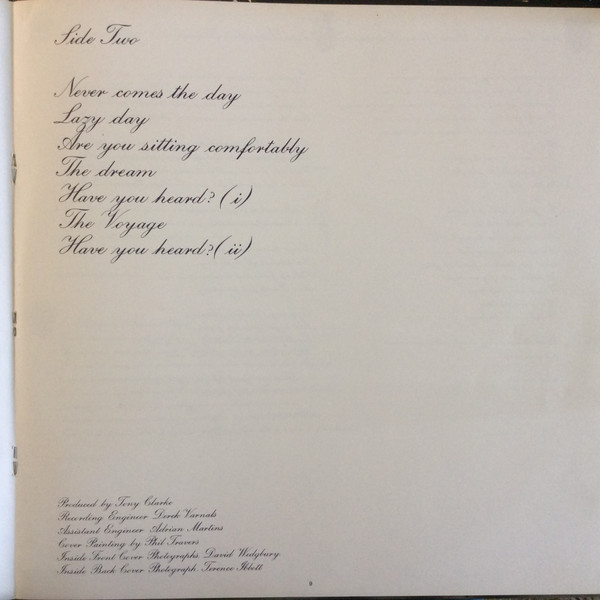 Side Two
Never comes the day
Lazy day
Are you sitting comfortably
The dream
Have you heard? (i)
The Voyage
Have you heard? (ii)
Produced by Tony Clarke
Recording Engineer Derek Varnals
Assistant Engineer Adrian Martins
Cover Painting by Phil Travers
Inside Front Cover Photographs. David Wedgbury
Inside Back Cover Photograph. Terence Ibbott